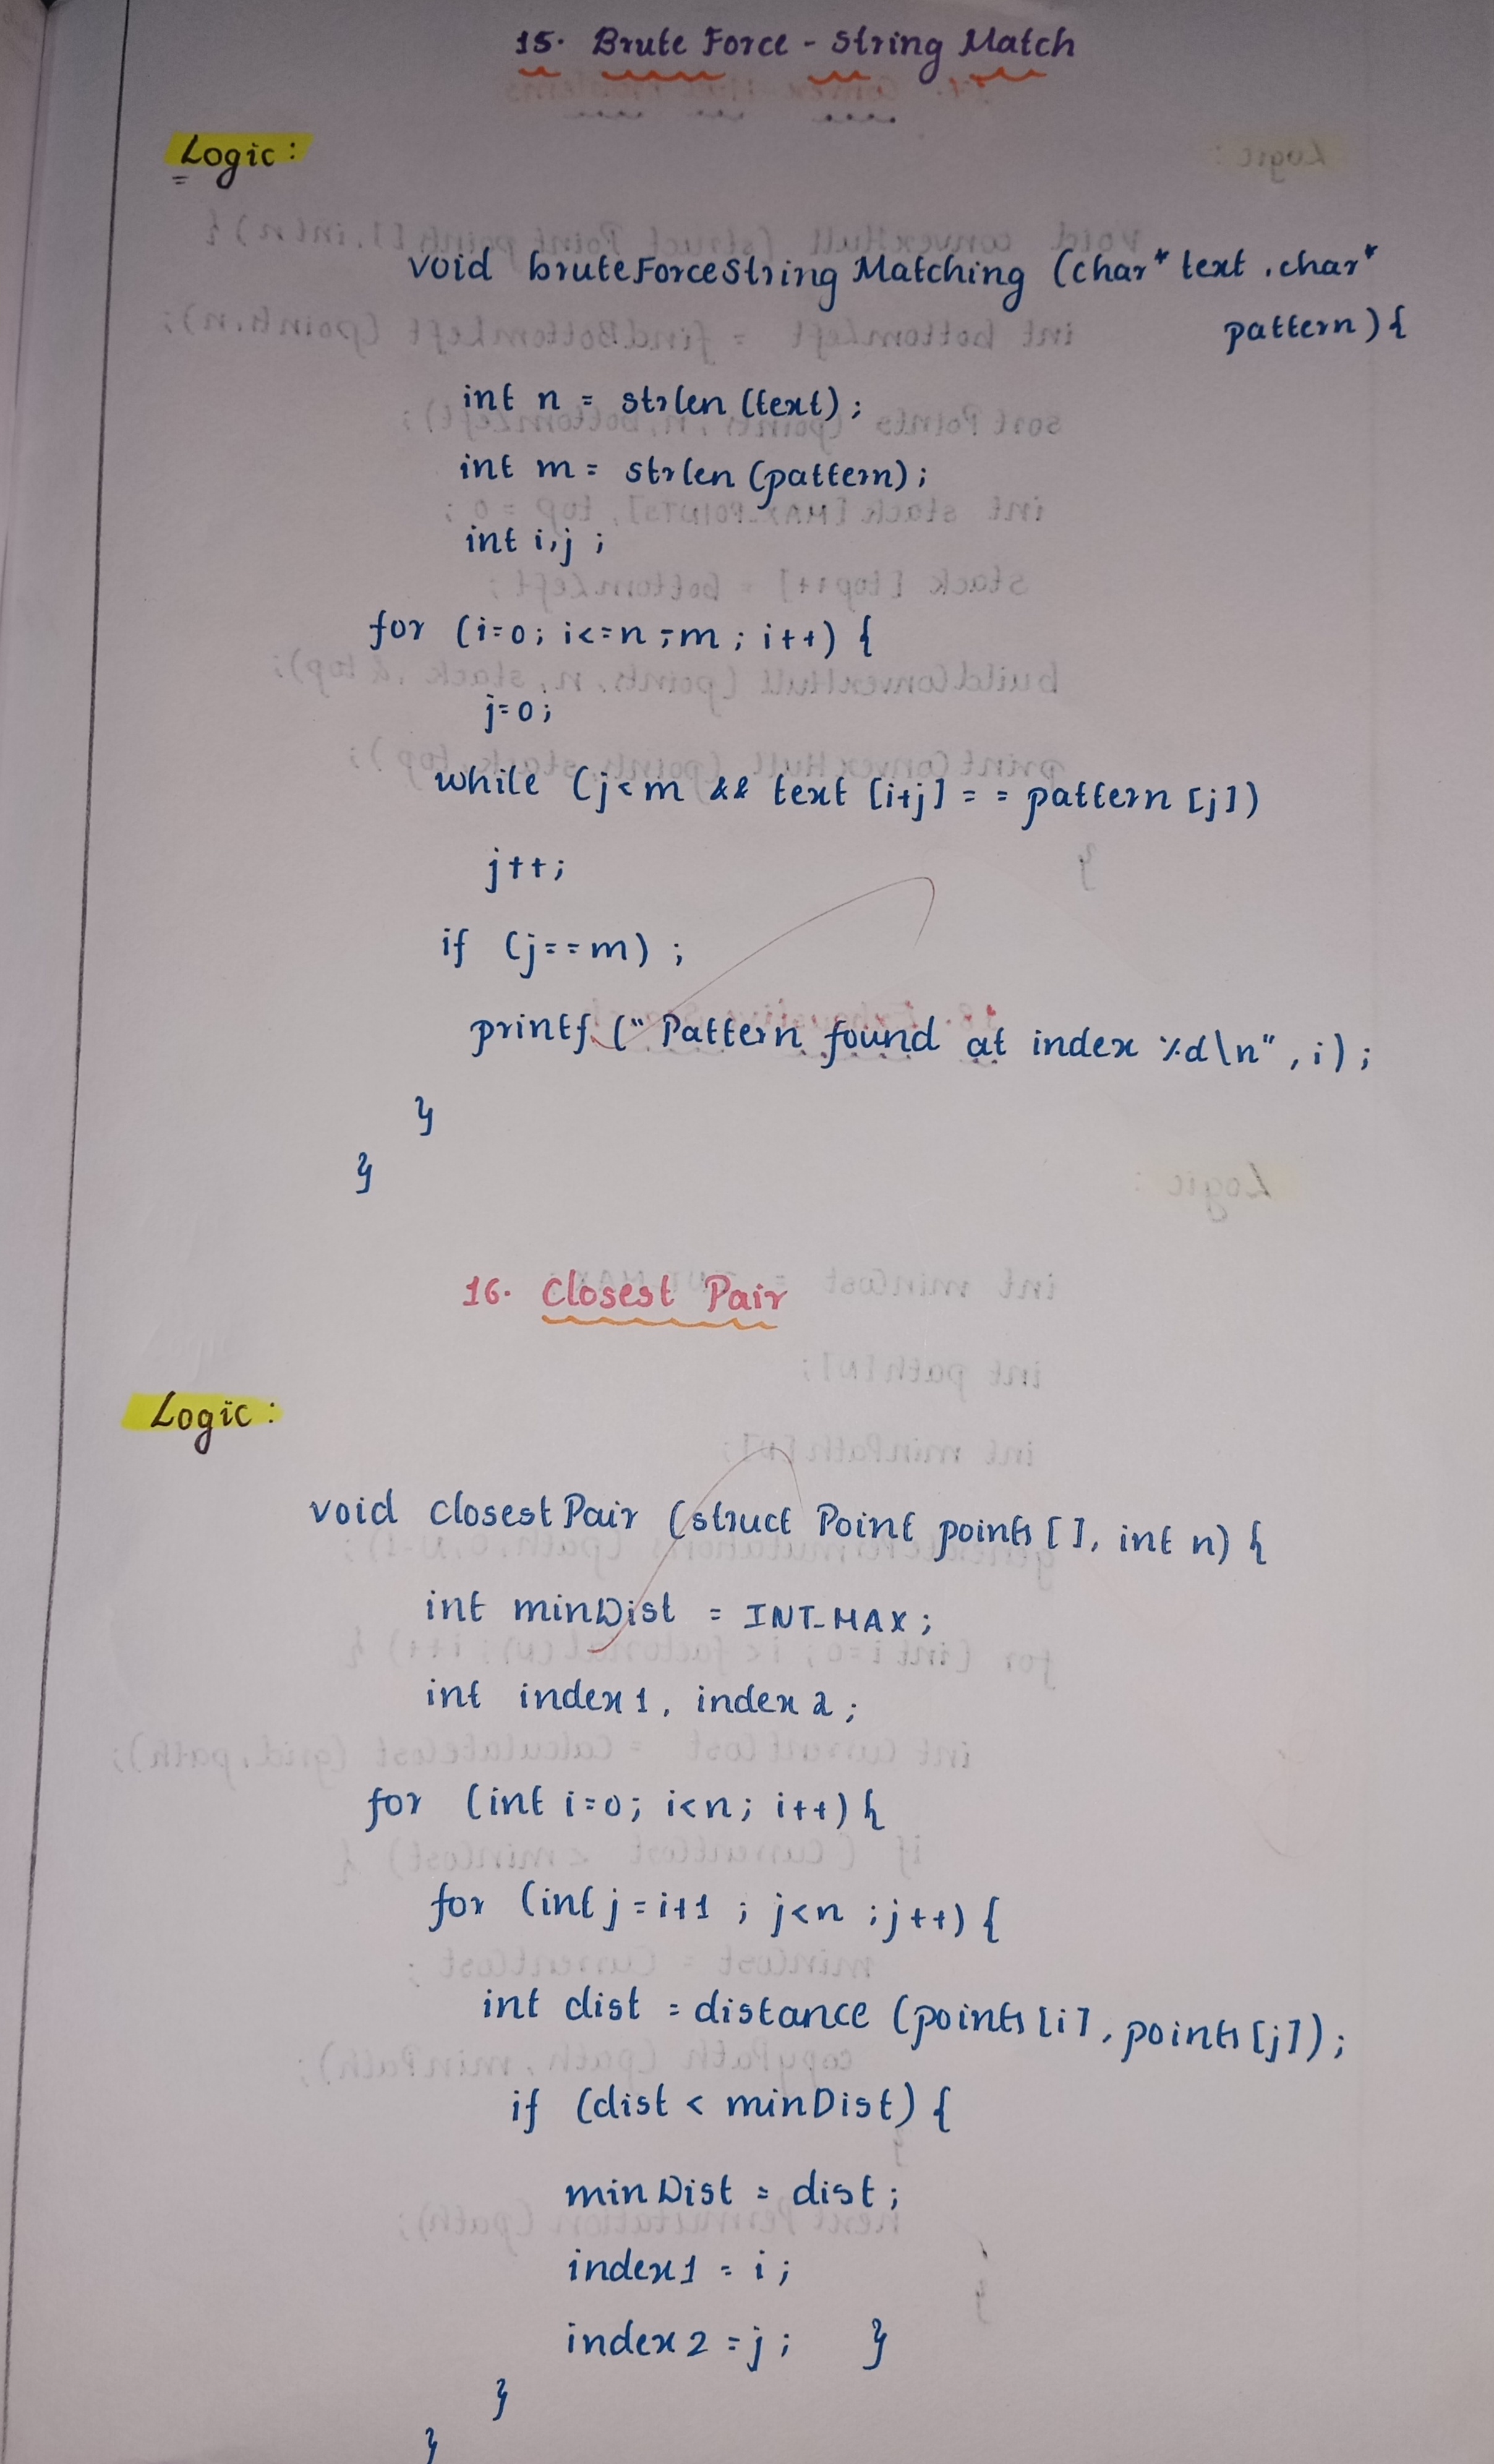 15. Brute Force - String Match
Logic:
void bruteForceString Matching (char* text, char*
pattern) {
int n = strlen (text);
int m = strlen (pattern);
int i,j ;
for (i=0; i<=n-m; i++) {
j=0;
while (j<m && text [i+j] = = pattern [j])
j++;
if (j==m) ;
printf (" Pattern found at index %d\n", i);
}
}
16. Closest Pair
Logic:
void closestPair (struct Point points [], int n) {
int minDist = INT_MAX;
int index1, index2;
for (int i=0; i<n; i++) {
for (int j=i+1 ; j<n ;j++) {
int dist = distance (points [i], points [j]);
if (dist < minDist) {
minDist = dist;
index1 = i;
index2 = j; }
}
}